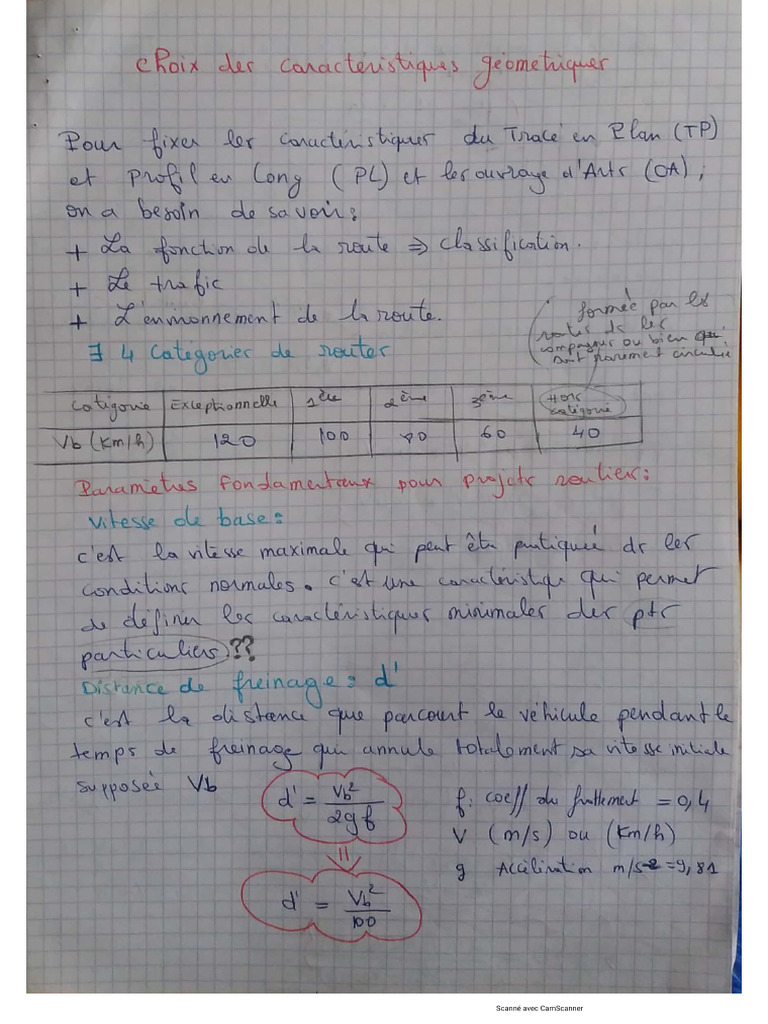 Choix des caractéristiques géométriques
Pour fixer les caractéristiques du Tracé en Plan (TP)
et Profil en Long (PL) et les ouvrage d'Arts (OA);
on a besoin de savoir:
+ La fonction de la route ⇒ Classification.
+ Le trafic
+ L'environnement de la route.
formée par les
routes ds les
compagnes ou bien qui
sont rarement circulée
∃ 4 Catégories de routes
Catégorie Exceptionnelle 1ère 2ème 3ème Hors catégorie
Vb (Km/h) 120 100 80 60 40
Paramètres fondamentaux pour projets routiers:
Vitesse de base:
c'est la vitesse maximale qui peut être pratiquée ds les
conditions normales. c'est une caractéristique qui permet
de définir les caractéristiques minimales des pts
particuliers ??
Distance de freinage: d'
c'est la distance que parcourt le véhicule pendant le
temps de freinage qui annule totalement sa vitesse initiale
supposée Vb
d' = Vb²/2gf
f: coeff du frottement = 0,4
V (m/s) ou (Km/h)
g Accélération m/s² = 9,81
d' = Vb²/100
Scanné avec CamScanner